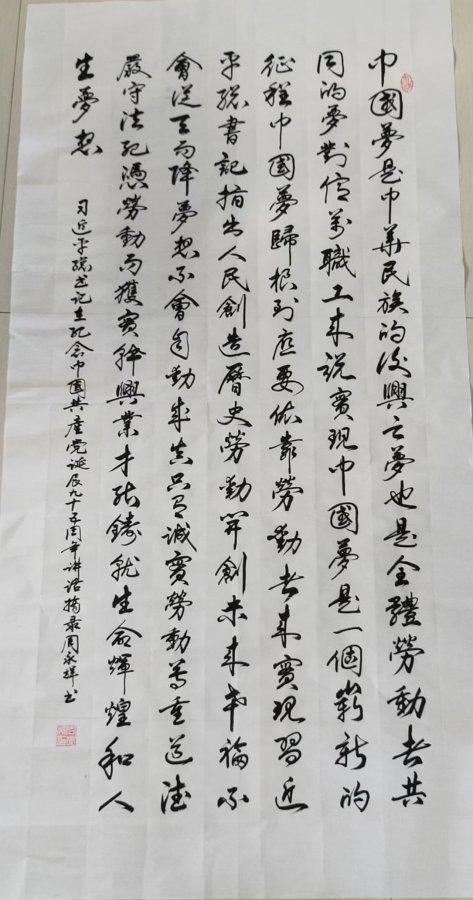 中國夢是中華民族的復興之夢也是全體勞動者共
同的夢對億萬職工來説實現中國夢是一個嶄新的
征程中國夢歸根到底要依靠勞動者來實現習近
平總書記指出人民創造曆史勞動開創未來幸福不
會從天而降夢想不會自動成真只有誠實勞動尊重道德
嚴守法紀憑勞動而獲實幹興業才能鑄就生命輝煌和人
生夢想
习近平總书记在纪念中國共產党诞辰九十五周年讲话摘录周永祥书